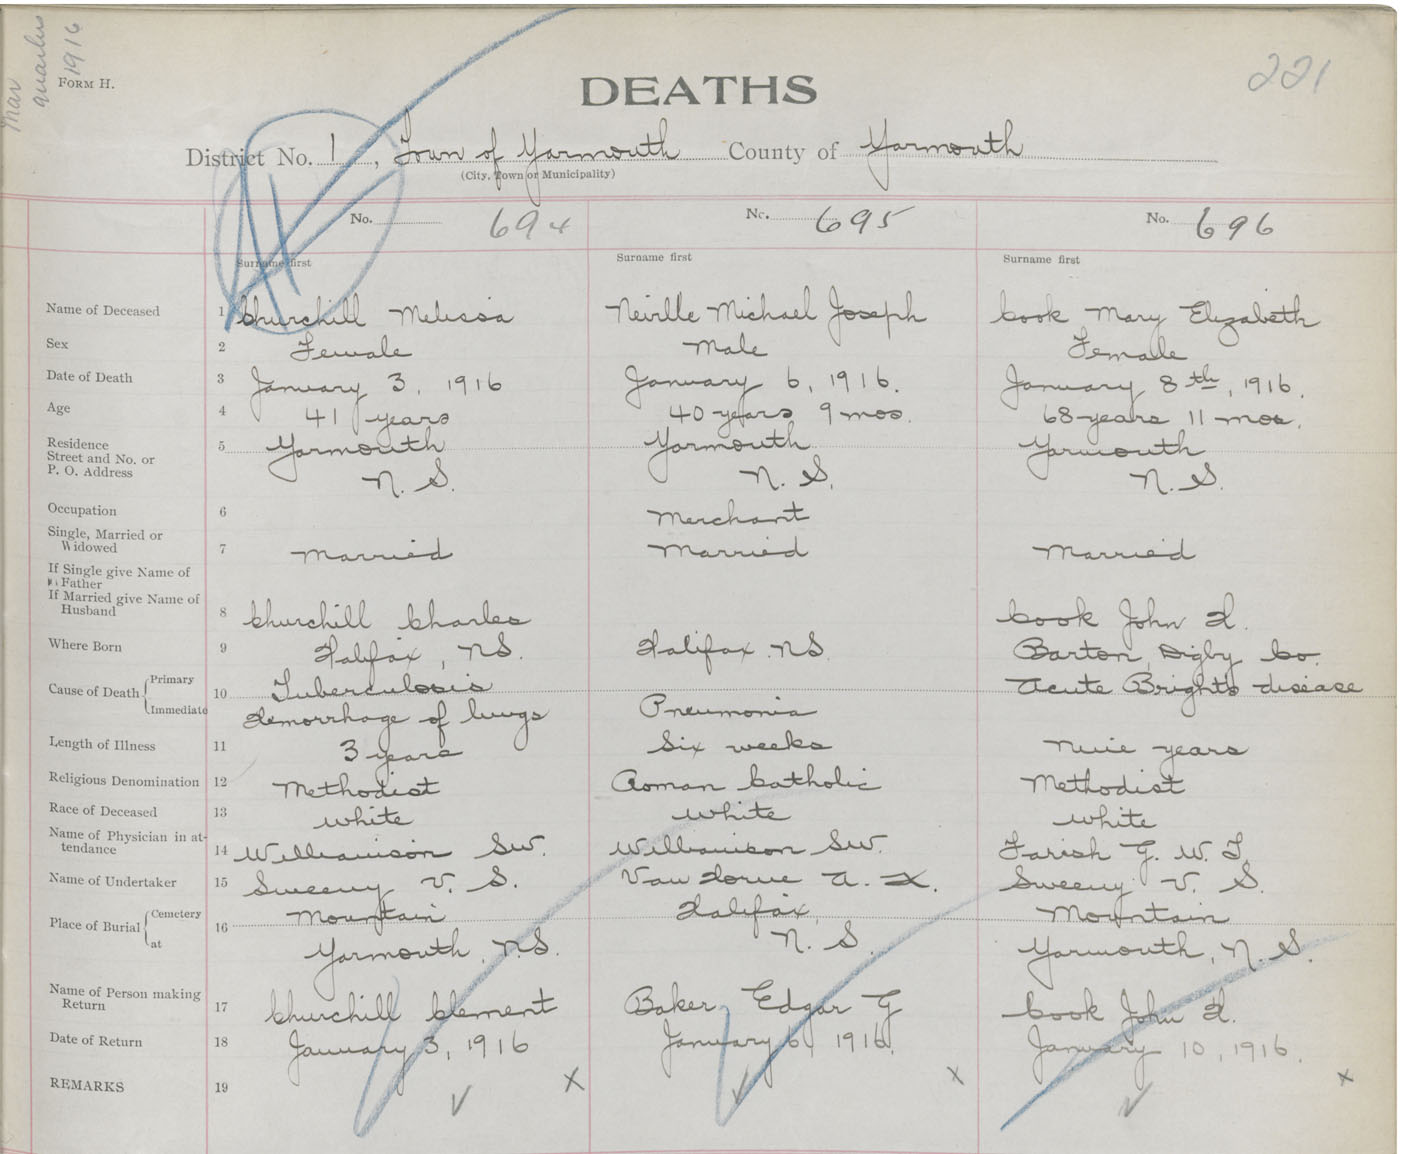 Mar
quarter
1916
FORM H.
221
DEATHS
District No. 1, Town of Yarmouth County of Yarmouth
(City, Town or Municipality)
No. 694 No. 695 No. 696
Surname first Surname first Surname first
Name of Deceased 1 Churchill Melissa Neville Michael Joseph Cook Mary Elizabeth
Sex 2 Female Male Female
Date of Death 3 January 3, 1916 January 6, 1916. January 8th, 1916.
Age 4 41 years 40 years 9 mos. 68 years 11 mos.
Residence 5 Yarmouth Yarmouth Yarmouth
Street and No. or
P. O. Address N. S. N. S. N. S.
Occupation 6 Merchant
Single, Married or
Widowed 7 Married Married Married
If Single give Name of
Father
If Married give Name of
Husband 8 Churchill Charles Cook John H.
Where Born 9 Halifax, NS. Halifax. NS. Barton, Digby Co.
Cause of Death Primary 10 Tuberculosis Acute Brights disease
Immediate Hemorrhage of lungs Pneumonia
Length of Illness 11 3 years Six weeks Nine years
Religious Denomination 12 Methodist Roman Catholic Methodist
Race of Deceased 13 White White White
Name of Physician in at-
tendance 14 Williamson SW. Williamson SW. Farish G. W. T.
Name of Undertaker 15 Sweeny V. S. Van Horne A. Sweeny V. S.
Place of Burial Cemetery 16 Mountain Halifax, Mountain
at Yarmouth, N.S. N. S. Yarmouth, N. S.
Name of Person making
Return 17 Churchill Clement Baker, Edgar G Cook John H.
Date of Return 18 January 3, 1916 January 6, 1916. January 10, 1916.
REMARKS 19 x x x